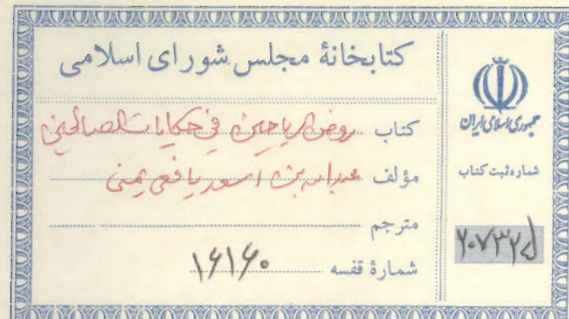 کتابخانهٔ مجلس شورای اسلامی
کتاب روض الریاحین فی حکایات الصالحین
مؤلف عبدالله بن اسعد یافعی یمنی
مترجم
شمارهٔ قفسه ۱۶۱۶۰
جمهوری اسلامی ایران
شماره ثبت کتاب
۲۰۷۳۲۵